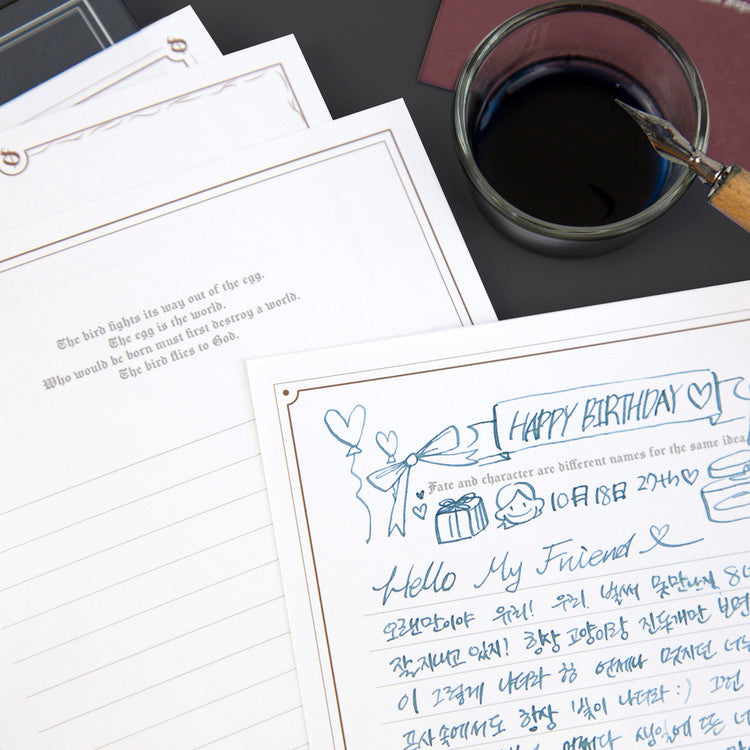 The bird fights its way out of the egg.
The egg is the world.
Who would be born must first destroy a world.
The bird flies to God.
HAPPY BIRTHDAY
Fate and character are different names for the same idea.
10月 18日 27th
Hello My Friend
오랜만이야 유리! 우리 벌써 못만난지 8년
잘지내고 있지! 항상 고양이랑
이 그렇게 나더라 항 언제나 멋지던 너는
속에서도 항상 빛이 나더라 :) 그런
생일에 또 너